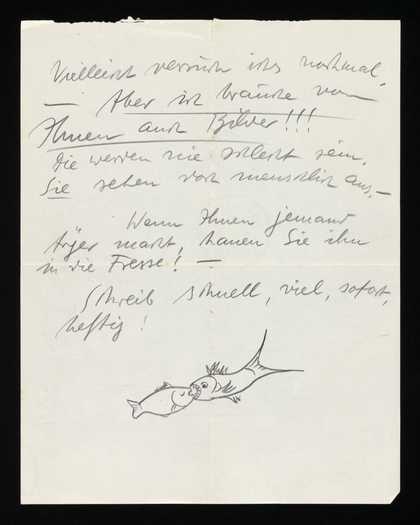 Vielleicht versuch ichs nochmal.
— Aber ich brauche von
Ihnen auch Bilder!!!
Die werden nie schlecht sein.
Sie sehen doch menschlich aus. —
Wenn Ihnen jemand
Ärger macht, hauen Sie ihm
in die Fresse! —
Schreib schnell, viel, sofort,
heftig!